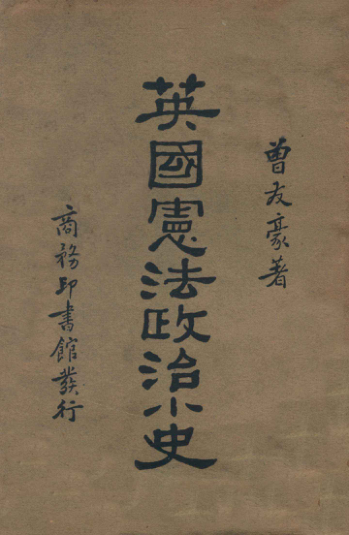 曾友豪著
英國憲法政治小史
商務印書館發行